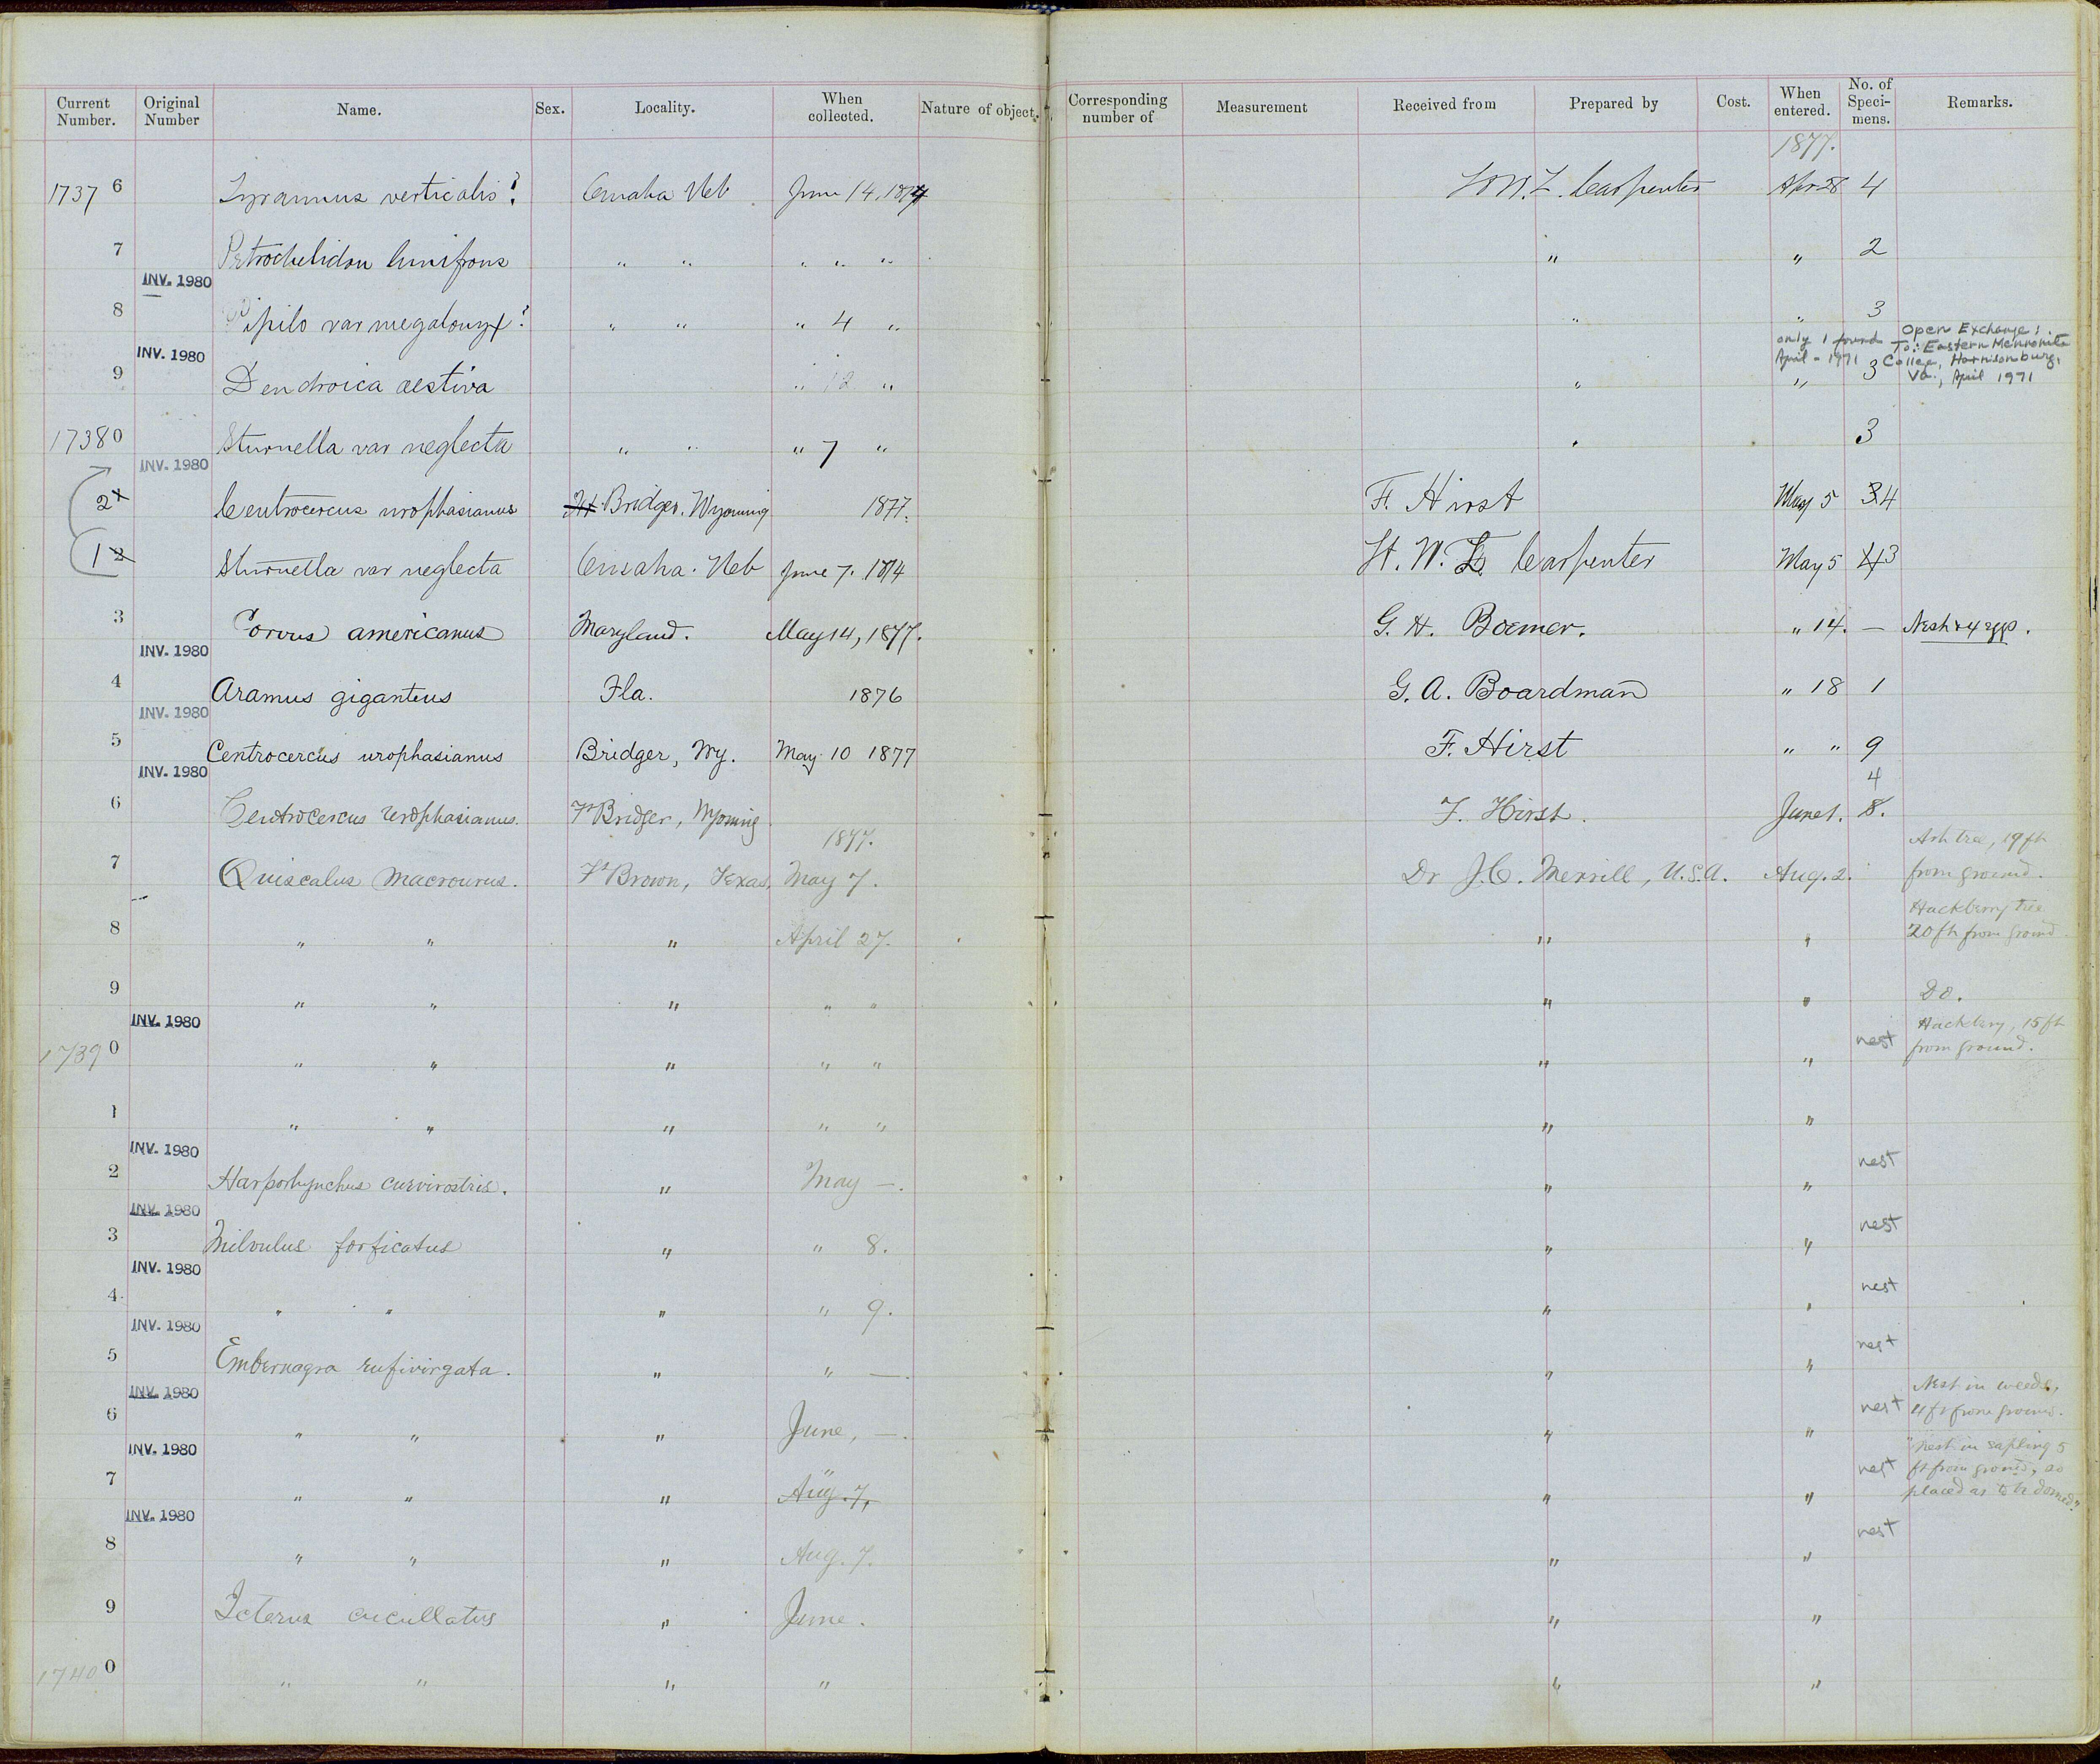 Current Number. Original Number Name. Sex. Locality. When collected. Nature of object. Corresponding number of Measurement Received from Prepared by Cost. When entered. No. of Speci-mens. Remarks.
1877.
1737 6 Tyrannus verticalis? Omaha Neb June 14, 1874 W. L. Carpenter Apr 28 4
7 Petrochelidon lunifrons " " " " " " " 2
INV. 1980
8 Pipilo var megalonyx? " " " 4 " " " 3
INV. 1980 only 1 found April - 1971 Open Exchange: To: Eastern Mennonite College, Harrisonburg, Va., April 1971
9 Dendroica aestiva " 12 " " " 3
17380 Sturnella var neglecta " " " 7 " " 3
INV. 1980
2 x Centrocercus urophasianus Ft. Bridger. Wyoming 1877. F. Hirst May 5 3 4
1 2 Sturnella var neglecta Omaha. Neb June 7. 1874 W. L. Carpenter May 5 4 3
3 Corvus americanus Maryland. May 14, 1877. G. H. Boemer. " 14. — Nest & 4 eggs.
INV. 1980
4 Aramus giganteus Fla. 1876 G. A. Boardman " 18 1
INV. 1980
5 Centrocercus urophasianus Bridger, Wy. May 10 1877 F. Hirst " " 9
INV. 1980
6 Centrocercus urophasianus. Ft Bridger, Wyoming F. Hirst. June 1. 8. 4
1877.
7 Quiscalus macrourus. Ft Brown, Texas, May 7. Dr J. C. Merrill, U.S.A. Aug. 2. Ash tree, 19 ft from ground.
8 " " " April 27. " " Hackberry tree 20 ft from ground
9 " " " " " " " Do.
INV. 1980
17390 " " " " " " " nest Hackbery, 15 ft from ground.
1 " " " " " " "
INV. 1980
2 Harporhynchus curvirostris. " May —. " " nest
INV. 1980
3 Milvulus forficatus " " 8. " " nest
INV. 1980
4 " " " " 9. " " nest
INV. 1980
5 Embernagra rufivirgata. " " —. " " nest
INV. 1980
6 " " " June, —. " " nest Nest in weeds, 4 ft from ground.
INV. 1980
7 " " " Aug. 7, " " nest "nest in sapling 5 ft from ground, so placed as to be domed"
INV. 1980
8 " " " Aug. 7. " " nest
9 Icterus cucullatus " June. " "
17400 " " " " " "